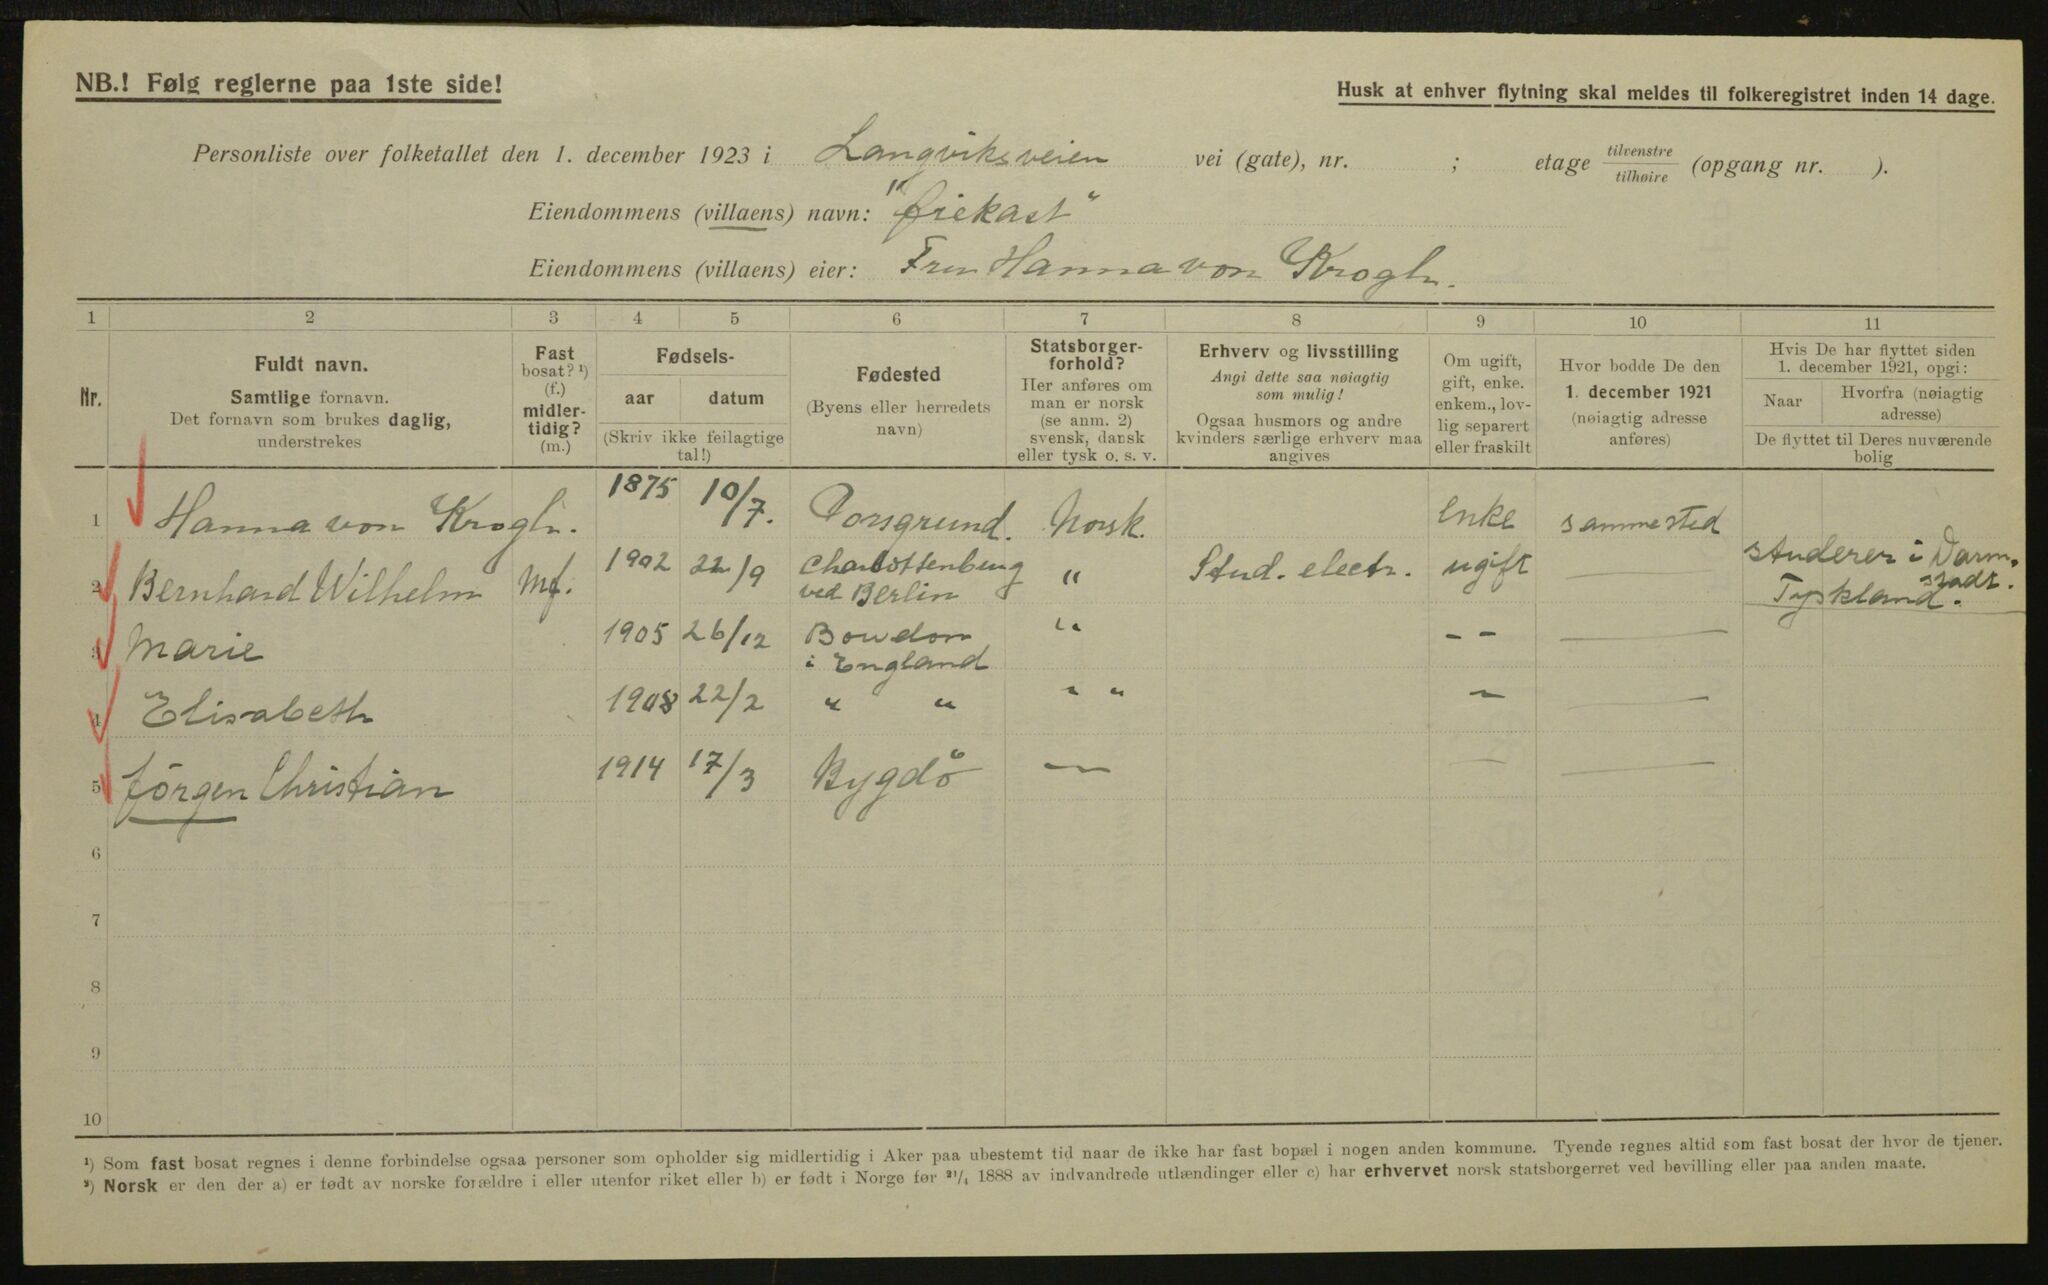 NB.! Følg reglerne paa 1ste side!
Husk at enhver flytning skal meldes til folkeregistret inden 14 dage.
Personliste over folketallet den 1. december 1923 i Langviksveien vei (gate), nr. ; etage tilvenstre/tilhøire (opgang nr. ).
Eiendommens (villaens) navn: "Öiekast"
Eiendommens (villaens) eier: Fru Hanna von Krogh.
1 2 3 4 5 6 7 8 9 10 11
Nr.
Fuldt navn.
Samtlige fornavn.
Det fornavn som brukes daglig,
understrekes
Fast
bosat? ¹)
(f.)
midler-
tidig?
(m.)
Fødsels-
aar datum
(Skriv ikke feilagtige
tal!)
Fødested
(Byens eller herredets
navn)
Statsborger-
forhold?
Her anføres om
man er norsk
(se anm. 2)
svensk, dansk
eller tysk o. s. v.
Erhverv og livsstilling
Angi dette saa nøiagtig
som mulig!
Ogsaa husmors og andre
kvinders særlige erhverv maa
angives
Om ugift,
gift, enke.
enkem., lov-
lig separert
eller fraskilt
Hvor bodde De den
1. december 1921
(nøiagtig adresse
anføres)
Hvis De har flyttet siden
1. december 1921, opgi:
Naar
Hvorfra (nøiagtig
adresse)
De flyttet til Deres nuværende
bolig
1 Hanna von Krogh. 1875 10/7. Porsgrund. Norsk. Enke sammested
2 Bernhard Wilhelm Mf. 1902 22/9 Charlottenburg " Stud. electr. ugift — studerer i Darm-
ved Berlin stadt.
Tyskland.
3 Marie 1905 26/12 Bowdon " - - —
i England
4 Elisabeth 1908 22/2 " " " " - —
5 Jörgen Christian 1914 17/3 Bygdö — — —
6
7
8
9
10
¹) Som fast bosat regnes i denne forbindelse ogsaa personer som opholder sig midlertidig i Aker paa ubestemt tid naar de ikke har fast bopæl i nogen anden kommune. Tyende regnes altid som fast bosat der hvor de tjener.
²) Norsk er den der a) er født av norske forældre i eller utenfor riket eller b) er født i Norge før ²¹/₄ 1888 av indvandrede utlændinger eller c) har erhvervet norsk statsborgerret ved bevilling eller paa anden maate.